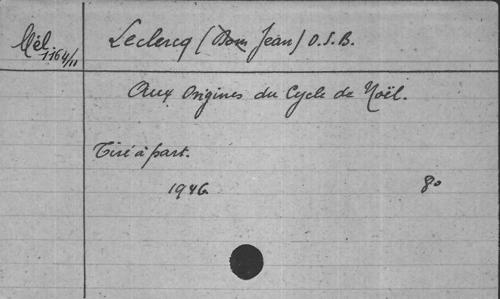 Mél. Leclercq (Dom Jean) O.S.B.
1164/11
Aux Origines du Cycle de Noël.
Tiré à part.
1946. 8°